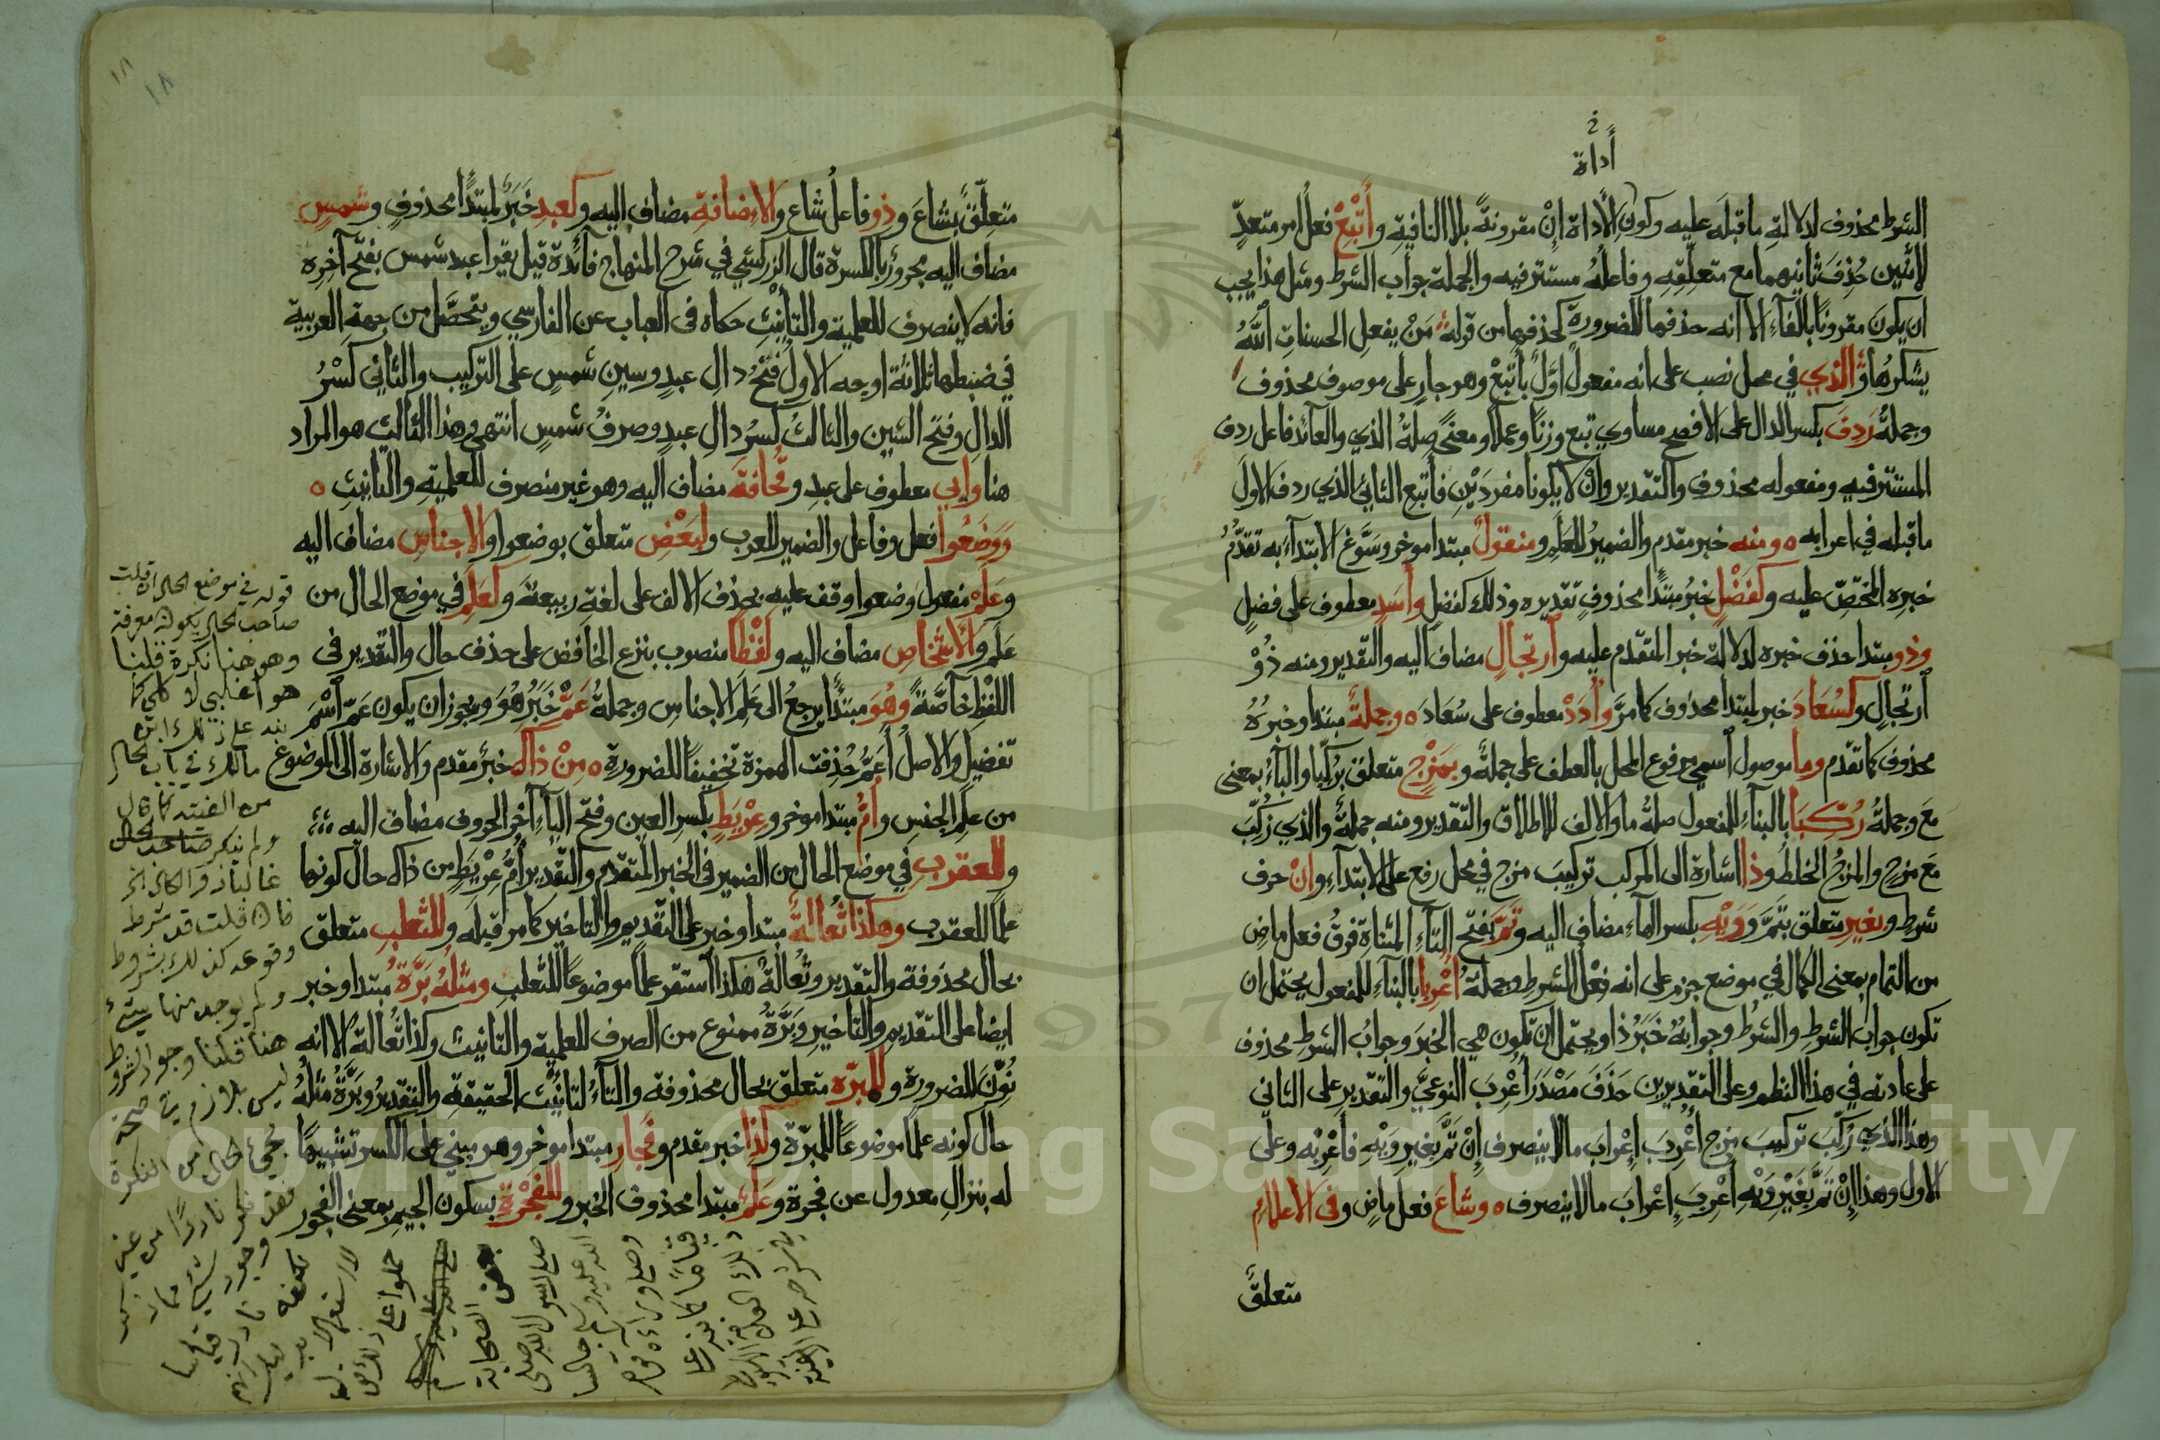 أداة
الشرط محذوف لدلالة ما قبله عليه وكون الأداة إن مقرونة بلا النافية وأتبع فعل امر متعدّ
لاثنين حُذفَ ثانيهما مع متعلقه وفاعلهُ مستتر فيه والجملة جواب الشرط ومثل هذا يجب
ان يكون مقرونا بالفآء الا انه حذفها للضرورة كحذفها من قوله مَنْ يفعل الحسنات اللهُ
يشكرها والذي في محل نصب على انه مفعول اوّل بأتبعْ وهو جار على موصوف محذوف
وجملة رَدِفَ بكسر الدال على الافصح مساوي تبع وزنا وعملا ومعنًى صلة الذي والعائد فاعل ردف
المستتر فيه ومفعوله محذوف والتقدير وإنْ لا يكونا مفردَيْنِ فأتبع الثاني الذي ردف الاول
ما قبله في اعرابه ه ومنه خبر مقدم والضمير للعلم ومنقولٌ مبتدا موخر وسَوَّغ الابتدآءَ به تقدُّمُ
خبره المختصّ عليه وكفَضْلٍ خبرُ مبتدًا محذوفٍ تقديره وذلك كفضلٍ وأسَدٍ معطوف على فضلٍ
وذو مبتدا حذف خبره لدلالة خبر المتقدّم عليه وارتجالٍ مضاف اليه والتقدير ومنه ذُوْ
ارتجالٍ وكسُعَادَ خبر لمبتدا محذوف كما مرّ وأُدَدْ معطوف على سُعَادَ ه وجملةٌ مبتدا وخبرُهُ
محذوف كما تقدّم وما موصول اسمي مرفوع المحل بالعطف على جملةٌ وبمَزْجٍ متعلق بركّبا والبآءُ بمعنى
مَعَ وجملةُ رُكِّبَا بالبنآء للمفعول صلةُ ما والالف للاطلاق والتقدير ومنه جملةٌ والذي رُكّبَ
مَعَ مزجٍ والمزجُ الخلطُ وذا اشارة الى المركب تركيبَ مزج في محل رفع على الابتدآء وإنْ حرف
شرطٍ وبغيرِ متعلق بتَمَّ ووَيْهِ بكسر الهآء مضاف اليه وتَمَّ بفتح التآء المثناة فوقُ فعل ماض
من التمام بمعنى الكمال في موضع جزم على انه فعل الشرط وجملةُ أُعْرِبا بالبنآء للمفعول يحتمل ان
تكون جواب الشرط والشرطُ وجوابهُ خَبَرُ ذا ويحتمل ان تكون هي الخبرَ وجوابُ الشرط محذوف
على عادته في هذا النظم وعلى التقديرين حَذَفَ مَصْدَرَ أُعْرِبَ النوعيَّ والتقدير على الثاني
وهذا الذي رُكِّبَ تركيبَ مزج أُعْرِبَ إعْرَابَ ما لا ينصرف إنْ تَمَّ بغير وَيْهِ فأعْرِبْه وعلى
الاول وهذا إنْ تَمَّ بغَيْرِ وَيْهِ أُعْرِبَ إعْرابَ ما لا ينصرف ه وشاعَ فعل ماض وفي الاعلامِ
متعلقٌ
١٨
١٨
متعلّق بشاعَ وذو فاعل شاع والإضافةِ مضاف اليه وكعبدِ خَبَرٌ لمبتدًا محذوفٍ وشمسٍ
مضاف اليه مجرورٌ بالكسرة قال الزركشي في شرح المنهاج فآئدة قيل يقرأ عبد شمس بفتح آخره
فانه لا ينصرف للعلمية والتأنيثِ حكاه في العباب عن الفارسي ويتحصَّل من جهة العربية
في ضبطها ثلاثة اوجه الاول فتحُ دال عبدٍ وسينِ شمسٍ على التركيب والثاني كسْرُ
الدال وفتح السين والثالثُ كسرُ دال عبدٍ وصرفُ شمسٍ انتهى وهذا الثالث هو المراد
هنا وابي معطوف على عبدِ وقُحَافَةَ مضاف اليه وهو غير منصرف للعلميةِ والتانيثِ ه
ووَضَعُوا فعل وفاعل والضمير للعرب ولبعْضِ متعلق بوضعوا والاجناسِ مضاف اليه
وعَلَمْ مفعول وَضعوا وقف عليه بحذف الالف على لغة ربيعةَ وكعَلَمِ في موضع الحال من
عَلَم والأشخاصِ مضاف اليه ولفْظًا منصوب بنزع الخافض على حذف حال والتقدير في
اللفْظِ خآصَّةً وهُوَ مبتدأ يرجعُ الى عَلَم الاجناس وجملةُ عَمّْ خَبَرُ هُوَ ويجوز ان يكون عَمّ اسْمَ
تفضيل والاصلُ أعَمُّ حُذفت الهمزة تخفيفًا للضرورة ه مِنْ ذاكَ خبرٌ مقدم والاشارة الى الموضوع
من علَم الجنس وأُمُّ مبتدا موخر وعِرْيَطٍ بكسر العين وفتح اليآء آخر الحروف مضاف اليه
وللعقرب في موضع الحال من الضمير في الخبر المتقدم والتقدير أُمُّ عِرْيَطٍ من ذاك حال كونها
علمًا للعقرب وهكذا ثُعالَةٌ مبتدا وخبر على التقديم والتاخير كما مر قبله وللثعلبِ متعلق
بحال محذوفة والتقدير وثُعالةُ هكذا استقر علمًا موضوعًا للثعلبِ ومثلُهُ بَرَّةُ مبتدا وخبر
ايضا على التقديم والتاخير وبَرَّةُ ممنوع من الصرف للعلمية والتانيث وكذا ثُعالة الا انه
نُوِّنَ للضرورة وللمبَرّه متعلق بحال محذوفة والتآءُ لتانيث الحقيقة والتقديرُ وبَرَّةُ مثلُهُ
حال كونه علمًا موضوعًا للمبَرّة وكذا خبر مقدم وفَجَارِ مبتدا موخر وهو مبني على الكسر تشبيهًا
له بنزالِ معدول عن فجرة وعَلَمٌ مبتدا محذوف الخبر وللفَجْرَةِ بسكون الجيم بمعنى الفجور
قوله في موضع الحال ان قلت
صاحب الحال يكون معرفة
وهو هنا نكرة قلنا
هو أغلبي لا كلي كما
نبه على ذلك ابن
مالك في باب الحال
من الفيته كما قال
ولم ينكر
غالبا ذو الحال الخ
فان قلت قد شرط
وقوعه كذلك بشروط
ولم يوجد منها شيء
هنا قلنا وجود الشروط
ليس بلازم
مجئ الحال من النكرة
فقد ذكر نادرا من غير
حملوا على ذلك
الصحابة
جالسا
وصلى وراءه قوم
قياما